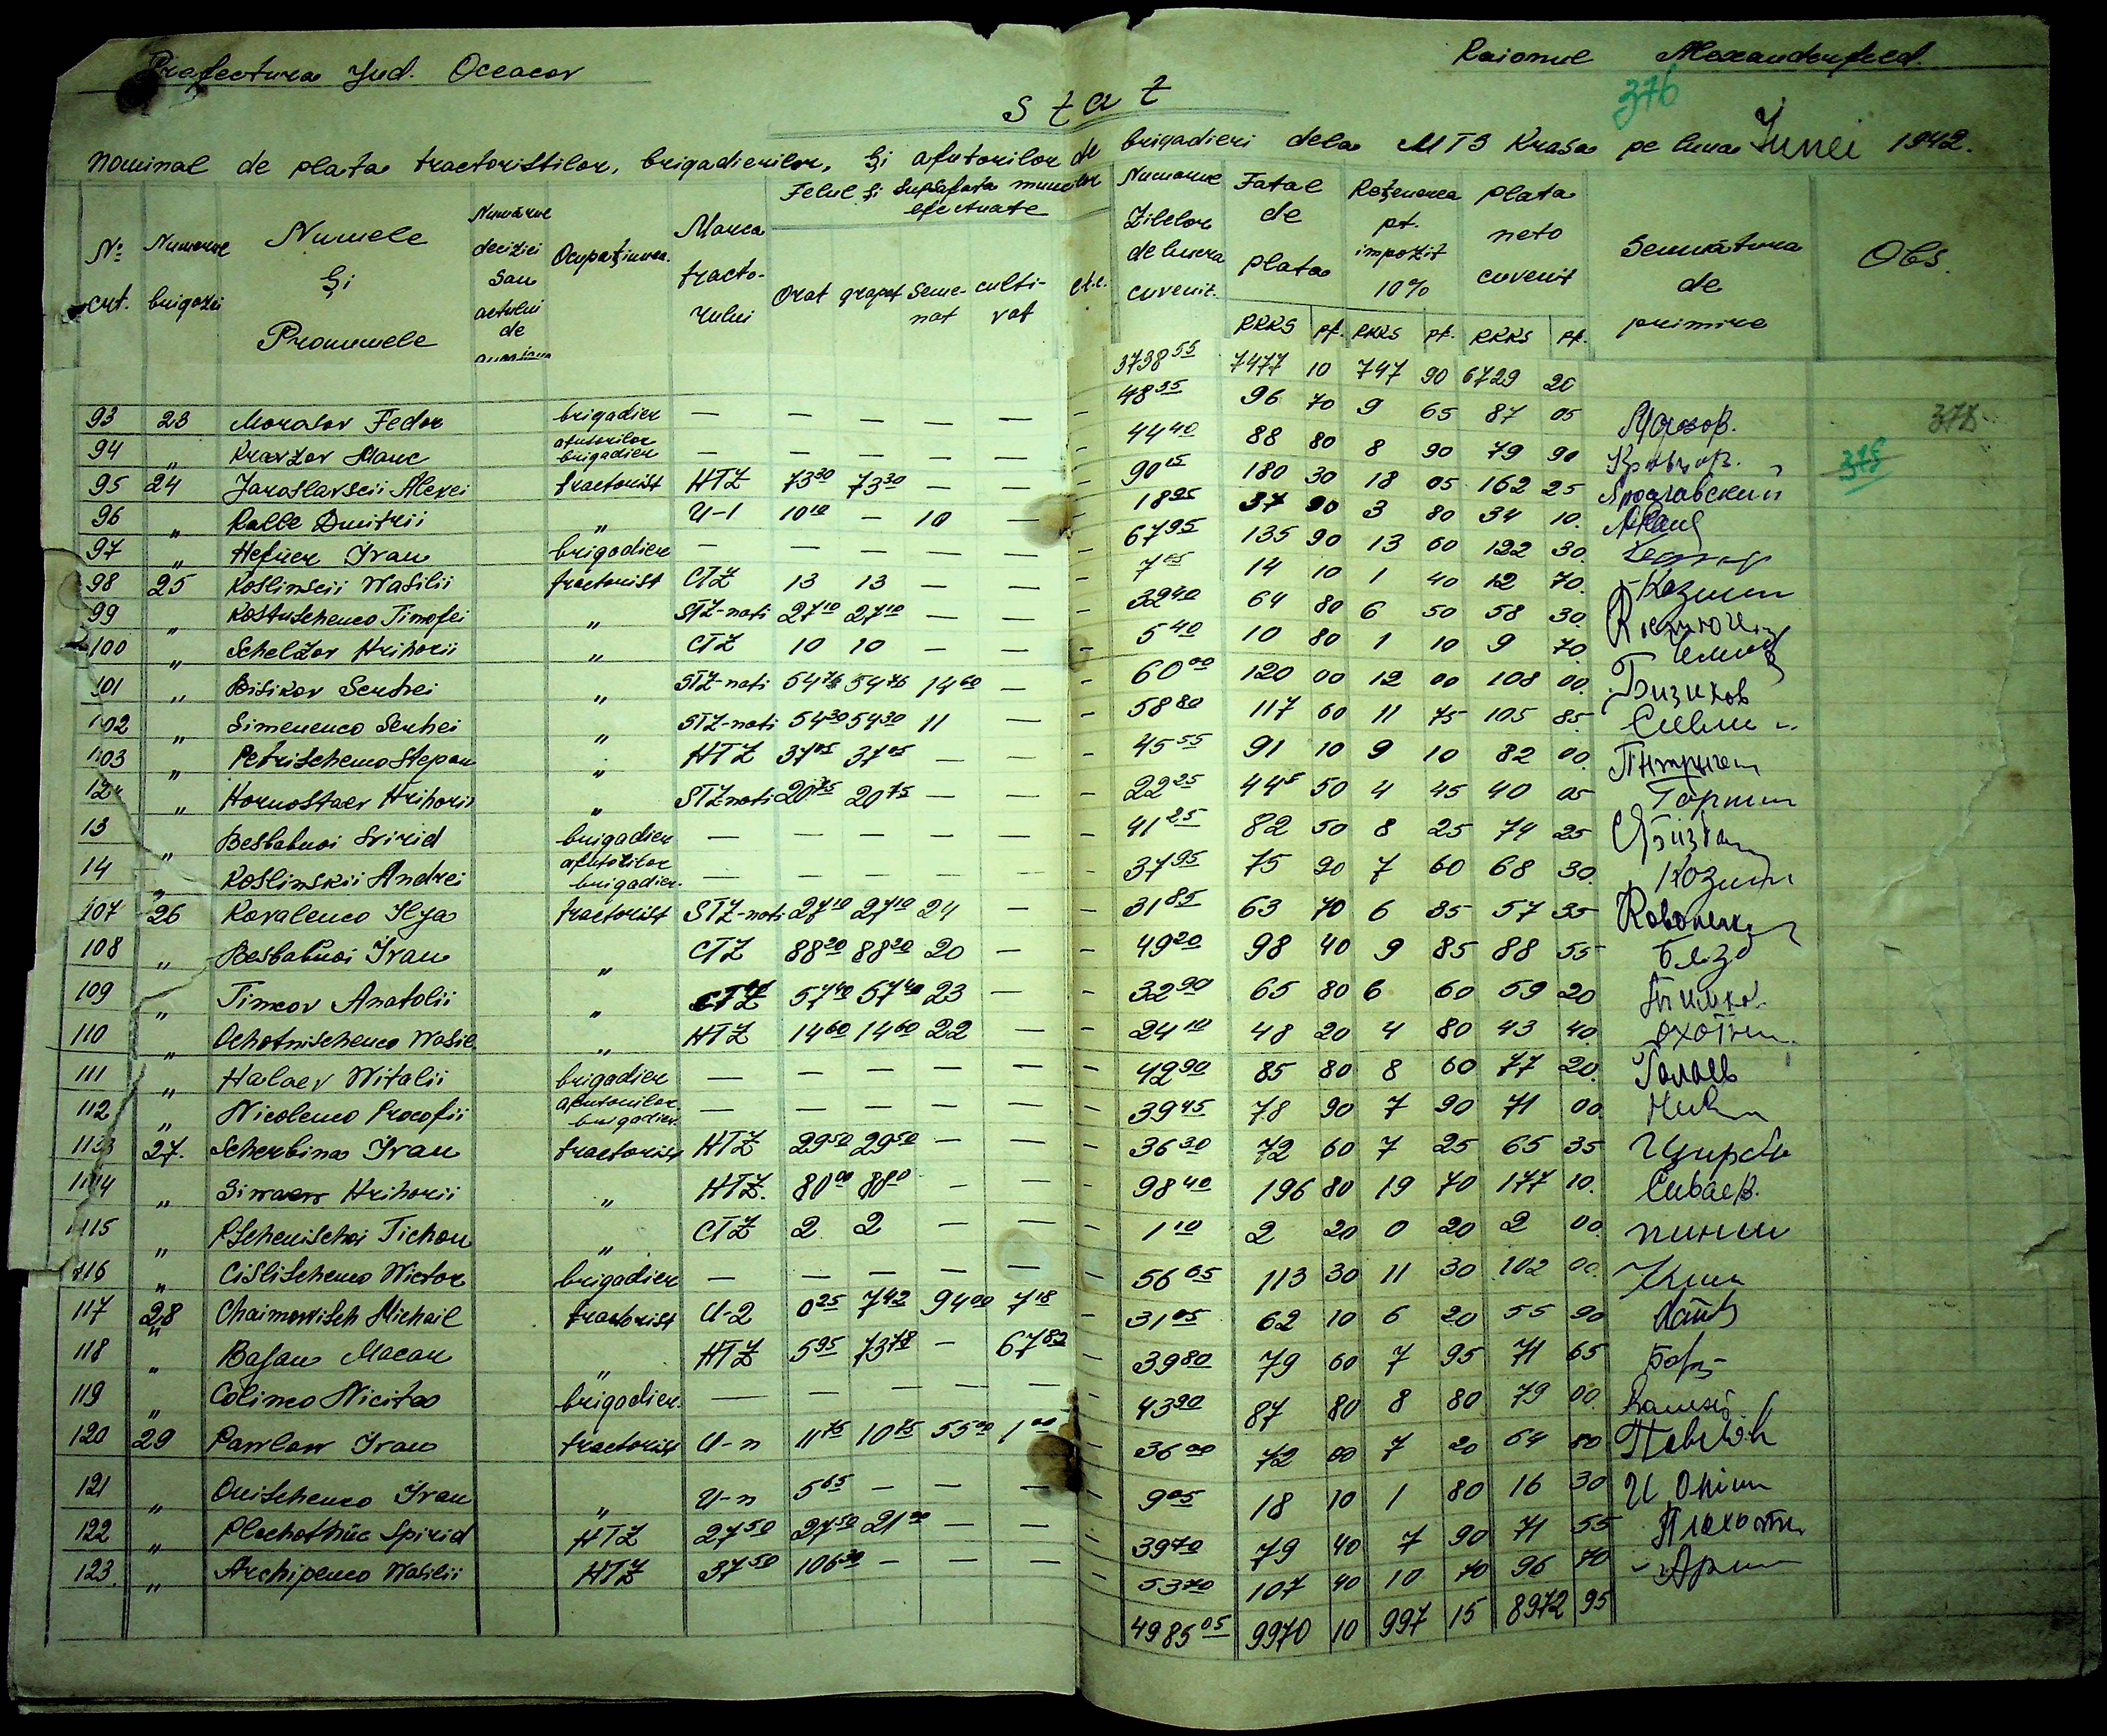 Prefectura Jud. Oceacov
Raionul Alexanderfeld.
376
Stat
Nominal de plata tractoristilor, brigadierilor, și ajutorilor de brigadieri dela MTS Krasa pe luna Junei 1942.
№ crt. Numarul brigazii Numele și Pronumele Numărul deciziei sau actului de Ocupațiunea Marca tractorului Felul și suprafata muncilor efectuate Orat grapat Semenat cultivat etc. Numarul Zilelor de lucru cuvenit. Total de plata Reținerea pt. impozit 10% plata neto cuvenit Semnătura de primire Obs.
RKKS pf. RKKS pf. RKKS pf.
3738 55 7477 10 747 90 6729 20
93 23 Morasov Fedor brigadier — — — — — - 48 35 96 70 9 65 87 05 Морозов. 378
94 " Kravzov Marc ajutorilor brigadier — — — — — - 44 40 88 80 8 90 79 90 Кравцов. 375
95 24 Jaroslavscii Alexei tractorist HTZ 73 30 73 30 — — - 90 15 180 30 18 05 162 25 Ярославский
96 " Ralle Dmitrii " U-1 10 10 — 10 — - 18 95 37 90 3 80 34 10.
97 " Hefner Ivan brigadier — — — — — - 67 95 135 90 13 60 122 30
98 25 Koslinscii Wasilii tractorist CTZ 13 13 — — - 7 05 14 10 1 40 12 70.
99 " Kostuschenco Timofei " STZ-nati 27 10 27 10 — — - 32 40 64 80 6 50 58 30
100 " Schelzov Hrihorii " CTZ 10 10 — — - 5 40 10 80 1 10 9 70
101 " Bisikov Serhei " STZ-nati 54 76 54 76 14 60 — - 60 00 120 00 12 00 108 00. Бизиков
102 " Simenenco Serhei " STZ-nati 54 30 54 30 11 — - 58 80 117 60 11 75 105 85
103 " Petrischenco Stepan " HTZ 37 05 37 05 — — - 45 55 91 10 9 10 82 00
" Hornostaev Hrihorii " STZ nati 20 75 20 75 — — - 22 25 44 50 4 45 40 05
13 " Besbabnoi Svirid brigadier — — — — — - 41 25 82 50 8 25 74 25
14 " Koslinskii Andrei ajutorilor brigadier. — — — — — - 37 95 75 90 7 60 68 30
107 26 Kovalenco Ilja tractorist STZ-nati 27 10 27 10 24 — - 31 85 63 70 6 35 57 35
108 " Besbabnoi Ivan " CTZ 88 20 88 20 20 — - 49 20 98 40 9 85 88 55
109 " Timcov Anatolii " CTZ 57 40 57 40 23 — - 32 90 65 80 6 60 59 20
110 " Ochotnischenco Wasil " HTZ 14 60 14 60 22 — - 24 10 48 20 4 80 43 40
111 " Halaev Witalii brigadier — — — — — - 42 90 85 80 8 60 77 20
112 " Nicolenco Procofii ajutorilor brigadier — — — — — - 39 45 78 90 7 90 71 00
113 27. Scherbina Ivan tractorist HTZ 29 50 29 50 — — - 36 30 72 60 7 25 65 35
114 " Siwaew Hrihorii " HTZ. 80 00 88 0 — — - 98 40 196 80 19 70 177 10. Сиваев.
115 " Pschenischni Tichon " CTZ 2 2 — — - 1 10 2 20 0 20 2 00
116 " Cislischenco Wictor brigadier — — — — — - 56 65 113 30 11 30 102 00
117 28 Chaimowitsch Michail tractorist U-2 0 25 7 42 94 00 7 18 - 31 05 62 10 6 20 55 90
118 " Basan Macan " HTZ 5 95 73 78 — 67 82 - 39 80 79 60 7 95 71 65
119 " Colinco Nicita brigadier. — — — — — - 43 90 87 80 8 80 79 00
120 29 Pawlow Ivan tractorist U-n 11 75 10 75 55 00 1 00 - 36 00 72 00 7 20 64 80
121 " Onischenco Ivan " U-n 5 65 — — — - 9 05 18 10 1 80 16 30
122 " Plochothüc Spirid HTZ 27 50 27 50 21 00 — — - 39 70 79 40 7 90 71 55
123. " Archipenco Wasilii HTZ 37 50 106 30 — — — - 53 70 107 40 10 70 96 70
4985 05 9970 10 997 15 8972 95